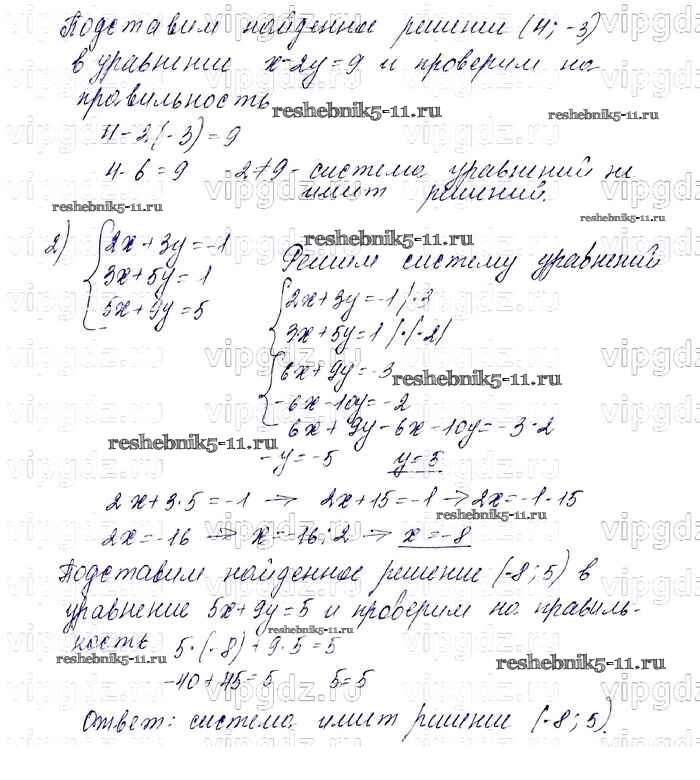 Подставим найденное решение (4; -3)
в уравнение x-2y=9 и проверим на
правильность
reshebnik5-11.ru
4-2(-3)=9
4-6=9 -2≠9 - система уравнений не
имит решений.
reshebnik5-11.ru
reshebnik5-11.ru
reshebnik5-11.ru
reshebnik5-11.ru
2) {2x+3y=-1
3x+5y=1
5x+9y=5
Решим систему уравнений
{2x+3y=-1 |·3
3x+5y=1 |·(-2)
{6x+9y=-3
-6x-10y=-2
reshebnik5-11.ru
6x+9y-6x-10y=-3-2
reshebnik5-11.ru
-y=-5 y=5
2x+3·5=-1 → 2x+15=-1 → 2x=-1-15
reshebnik5-11.ru
2x=-16 → x=-16:2 → x=-8
Подставим найденное решение (-8; 5) в
уравнение 5x+9y=5 и проверим на правиль-
ность
reshebnik5-11.ru
5·(-8)+9·5=5
reshebnik5-11.ru
reshebnik5-11.ru
-40+45=5 5=5
Ответ: система имит решение (-8; 5).
vipgdz.ru